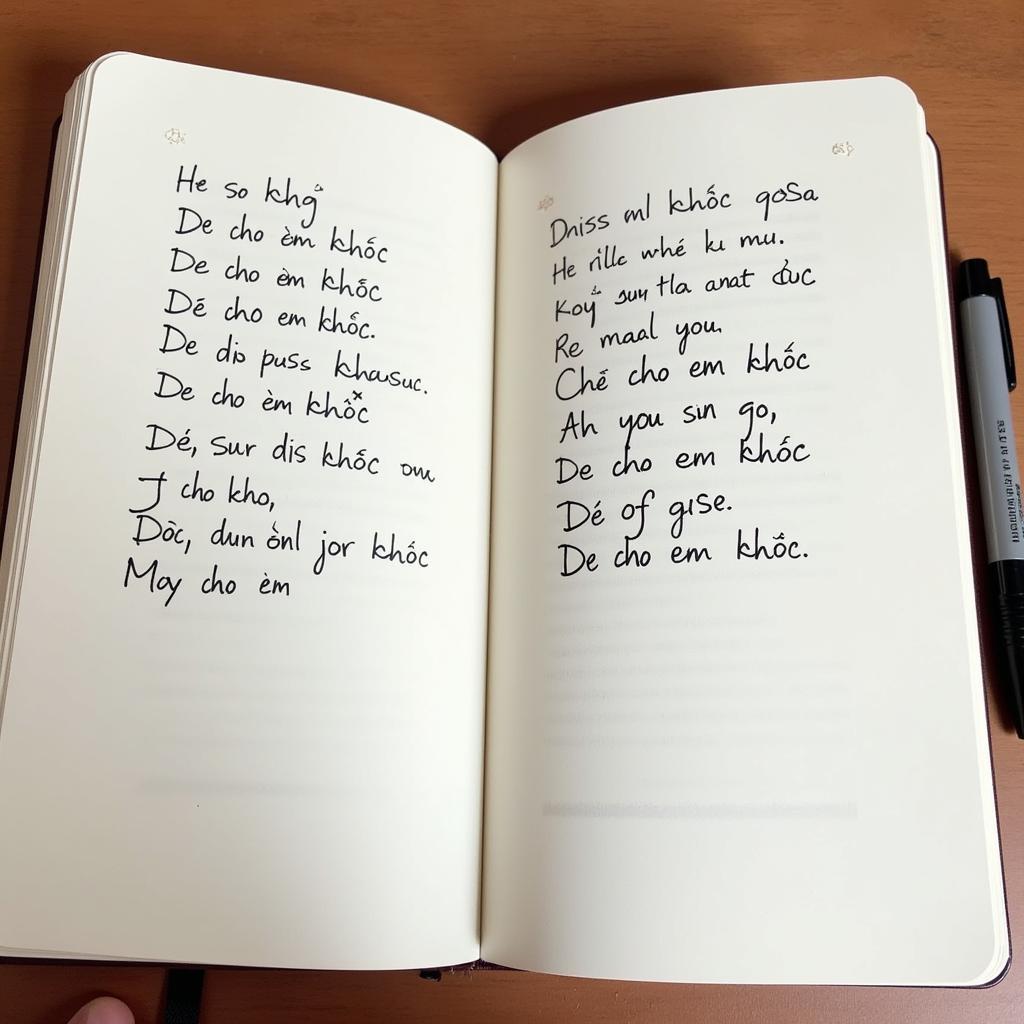 He so khg
De cho èm khốc
De cho èm khốc
Dé cho em khốc.
De dis puss khausuc.
De cho èm khốc
Dé, sur dis khốc ou
J cho kho,
Dòc, dun ònl jor khốc
May cho èm
Dniss ml khốc qoSa
He rille whé ku mu.
Koy sun tla anat
Re maal you.
Ché cho em khốc
Ah you sin go,
De cho em khốc
Dé of gise.
De cho em khốc.